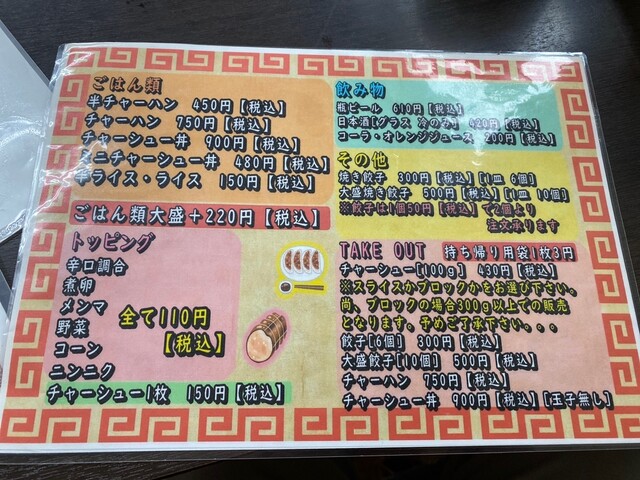 ごはん類
半チャーハン 450円【税込】
チャーハン 750円【税込】
チャーシュー丼 900円【税込】
ミニチャーシュー丼 480円【税込】
半ライス・ライス 150円【税込】
ごはん類大盛+220円【税込】
トッピング
辛口調合
煮卵
メンマ
野菜
コーン
ニンニク
全て110円
【税込】
チャーシュー1枚 150円【税込】
飲み物
瓶ビール 610円【税込】
日本酒[グラス 冷のみ] 420円【税込】
コーラ・オレンジジュース 200円【税込】
その他
焼き餃子 300円【税込】[1皿 6個]
大盛焼き餃子 500円【税込】[1皿 10個]
※餃子は1個50円【税込】で2個より
注文承ります
TAKE OUT 持ち帰り用袋1枚3円
チャーシュー[100g] 430円【税込】
※スライスかブロックかをお選び下さい。
尚、ブロックの場合300g以上での販売
となります。予めご了承下さい...
餃子[6個] 300円【税込】
大盛餃子[10個] 500円【税込】
チャーハン 750円【税込】
チャーシュー丼 900円【税込】[玉子無し]